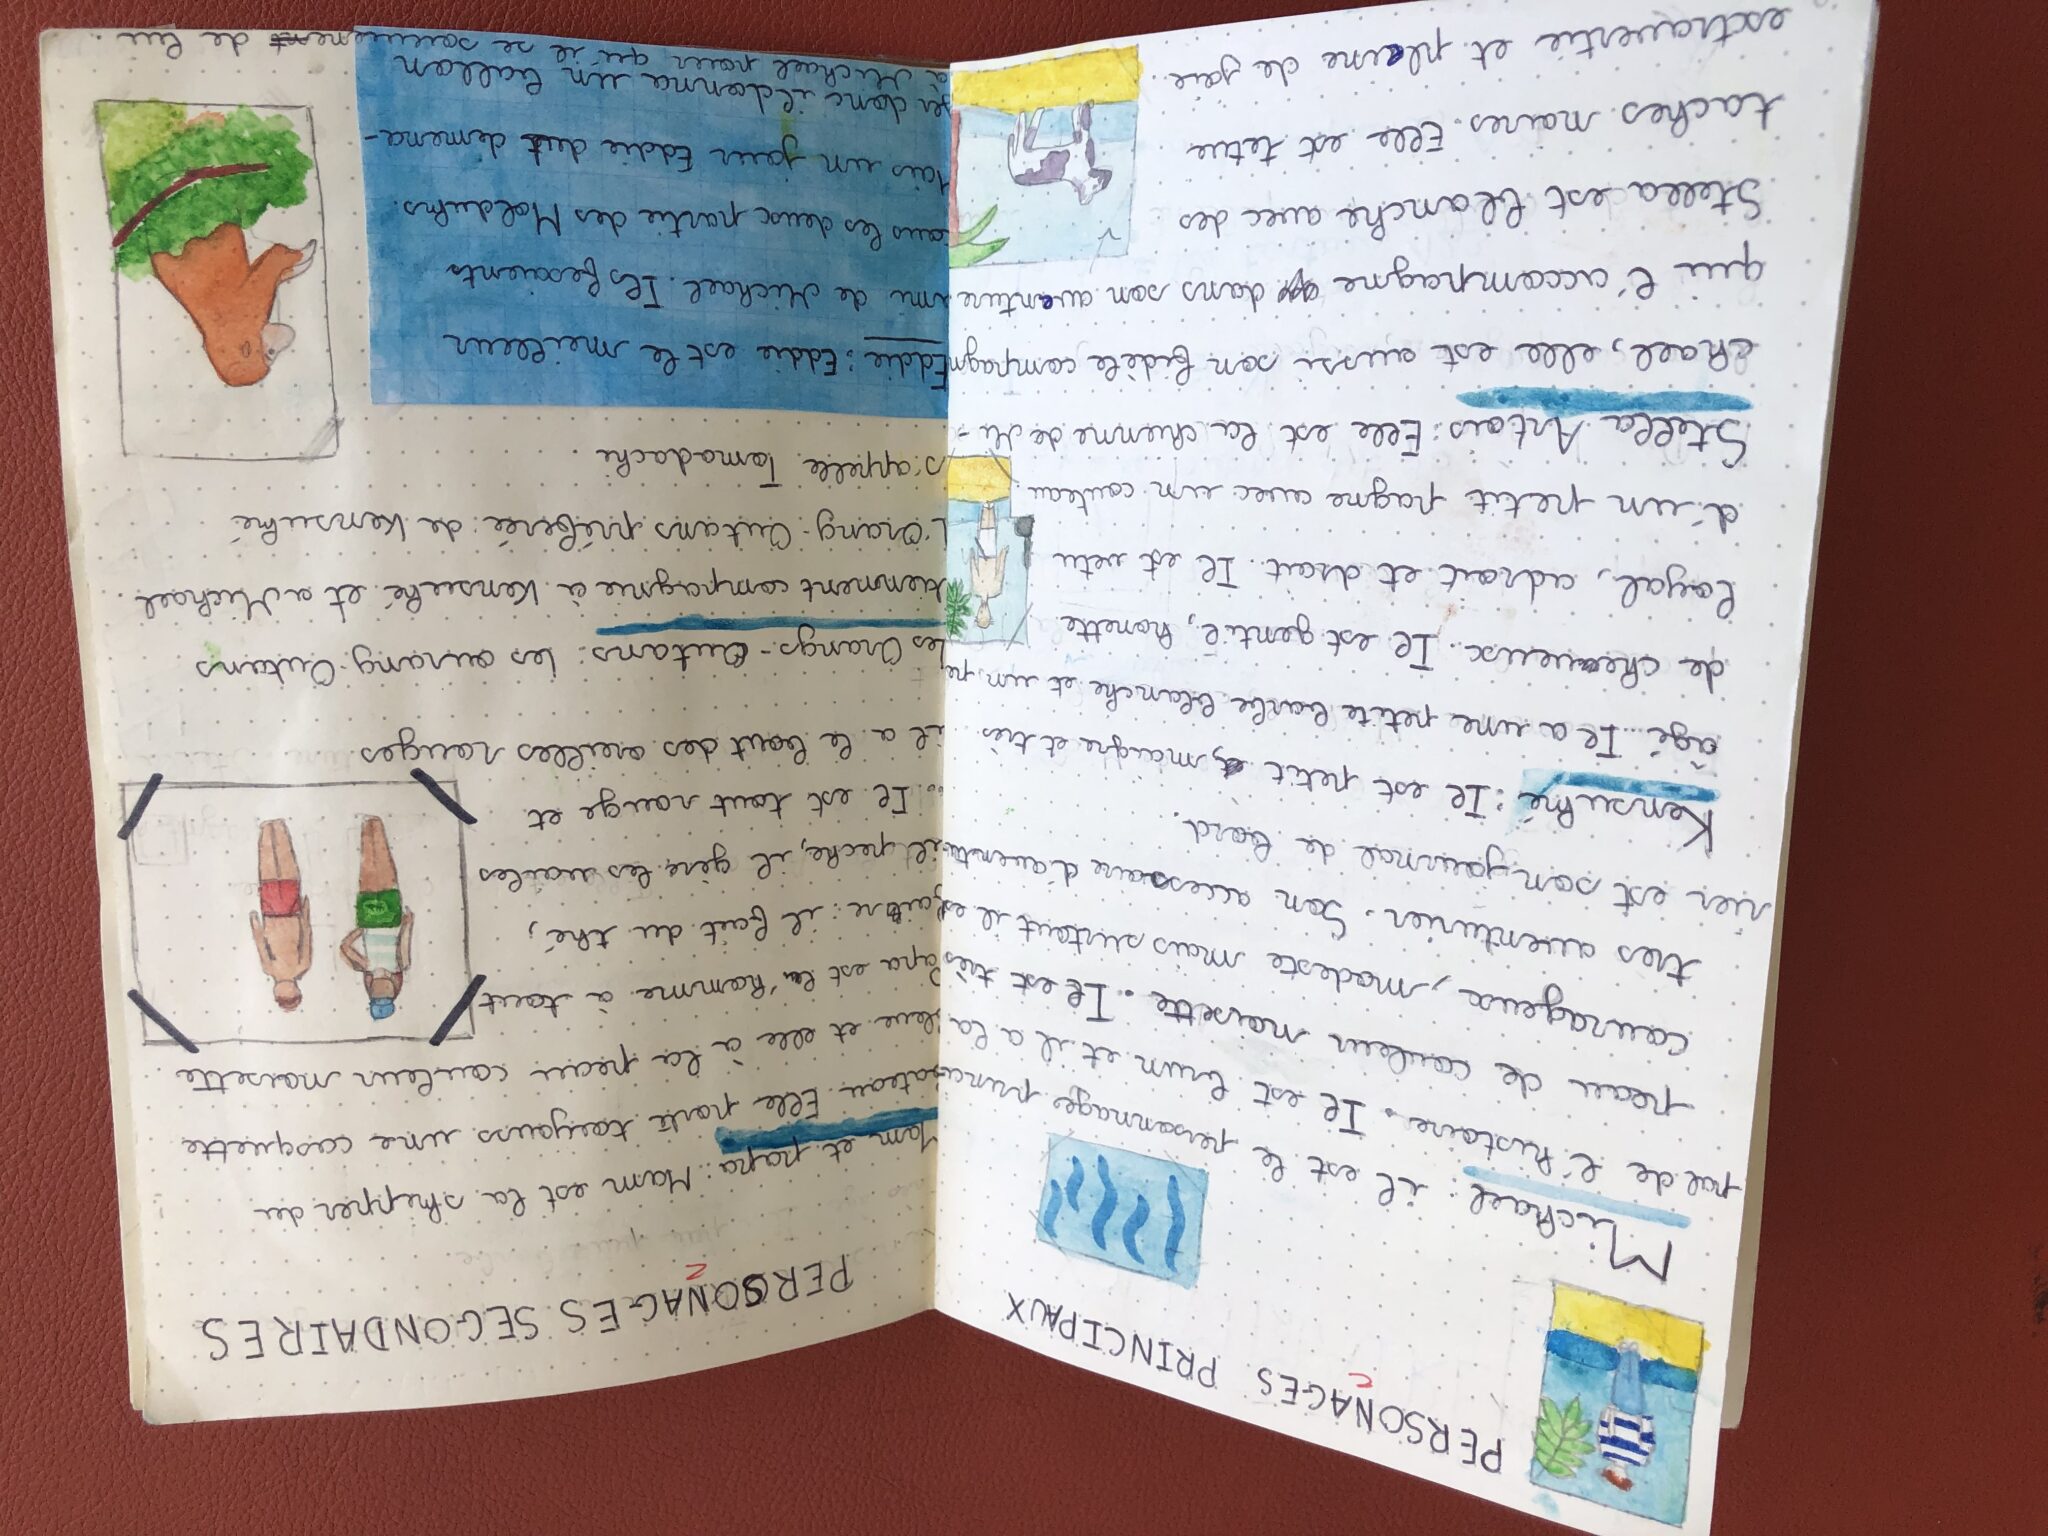 PERSONAGES PRINCIPAUX
Michael : il est le personnages princi
pal de l'histoire. Il est brun et il a la
peau de couleur noisette. Il est très
courageux, modeste mais surtout il est
tres aventurier. Son accessoire d'aventu
rier est son journal de bord.
Kensuké : Il est petit, maigre et très
âgé. Il a une petite barbe blanche et un pe
de cheveux. Il est gentil, honette
loyal, adroit et droit. Il est vetu
d'un petit pagne avec un couteau
Stella Artois : Elle est la chienne de Mi-
chael, elle est aussi son fidèle compagn
qui l'accompagne dans son aventure
Stella est blanche avec des
taches noires. Elle est tetue
extravertie et pleine de joie
PERSONAGES SEGONDAIRES
Mam et papa : Mam est la skepper du
bateau. Elle porte toujours une casquette
bleue et elle à la peau couleur noisette
Papa est l'homme à tout
faire : il fait du thé,
il peche, il gère les voiles
Il est tout rouge et
il a le bout des oreilles rouges
Les Orangs-Outans : les orang-Outans
tiennent compagnie à Kensuké et a Michael
L'Orang-Outans préférée de Kensuké
s'appelle Tomodachi
Eddie : Eddie est le meilleur
ami de Michael. Ils fesaients
tous les deux partie des Moldurons.
Mais un jour Eddie dut demena-
ger donc il donna un ballon
à Michael pour qu'il se souviennent de lui